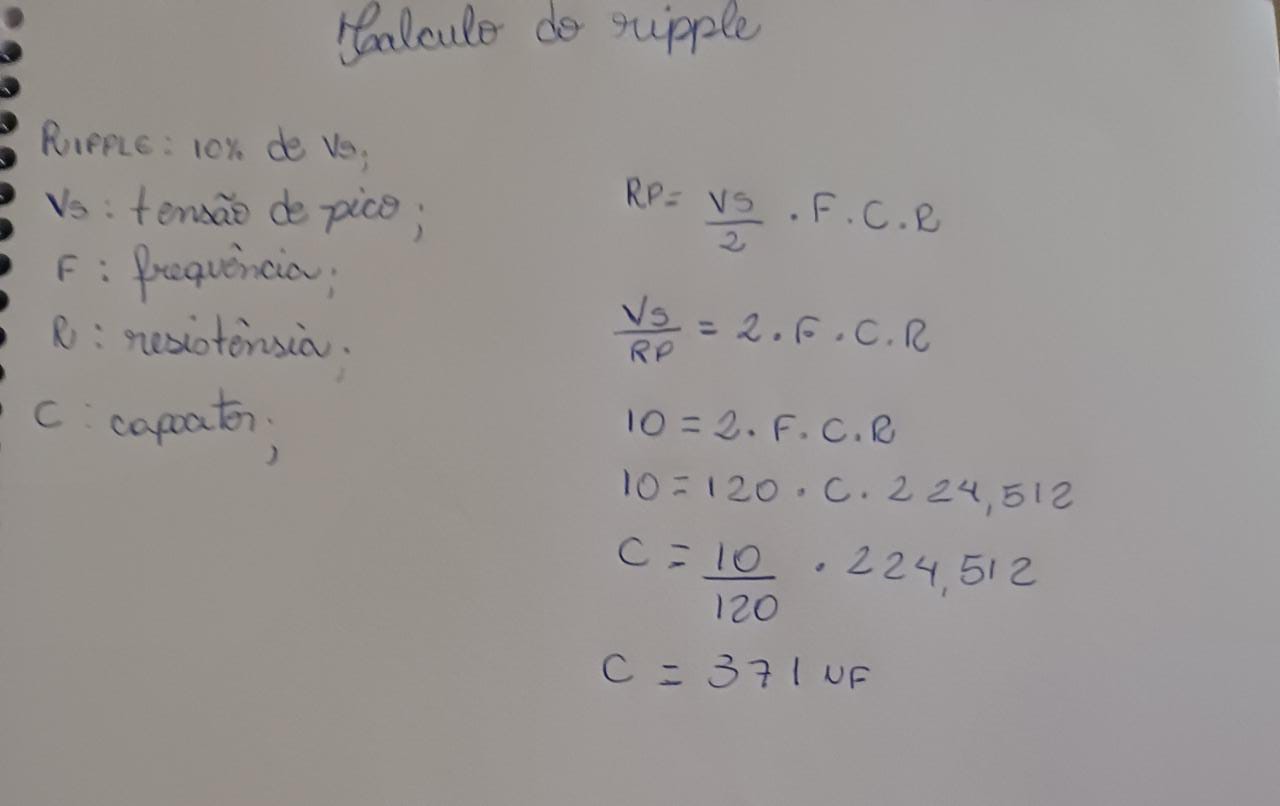 Calculo do ripple
RIPPLE: 10% de Vs;
Vs: tensão de pico;
F: frequência;
R: resistênsia;
C: capacitor;
RP= VS/2 . F. C. R
VS/RP = 2. F. C. R
10 = 2. F. C. R
10 = 120 . C. 224,512
C = 10/120 . 224,512
C = 371 UF